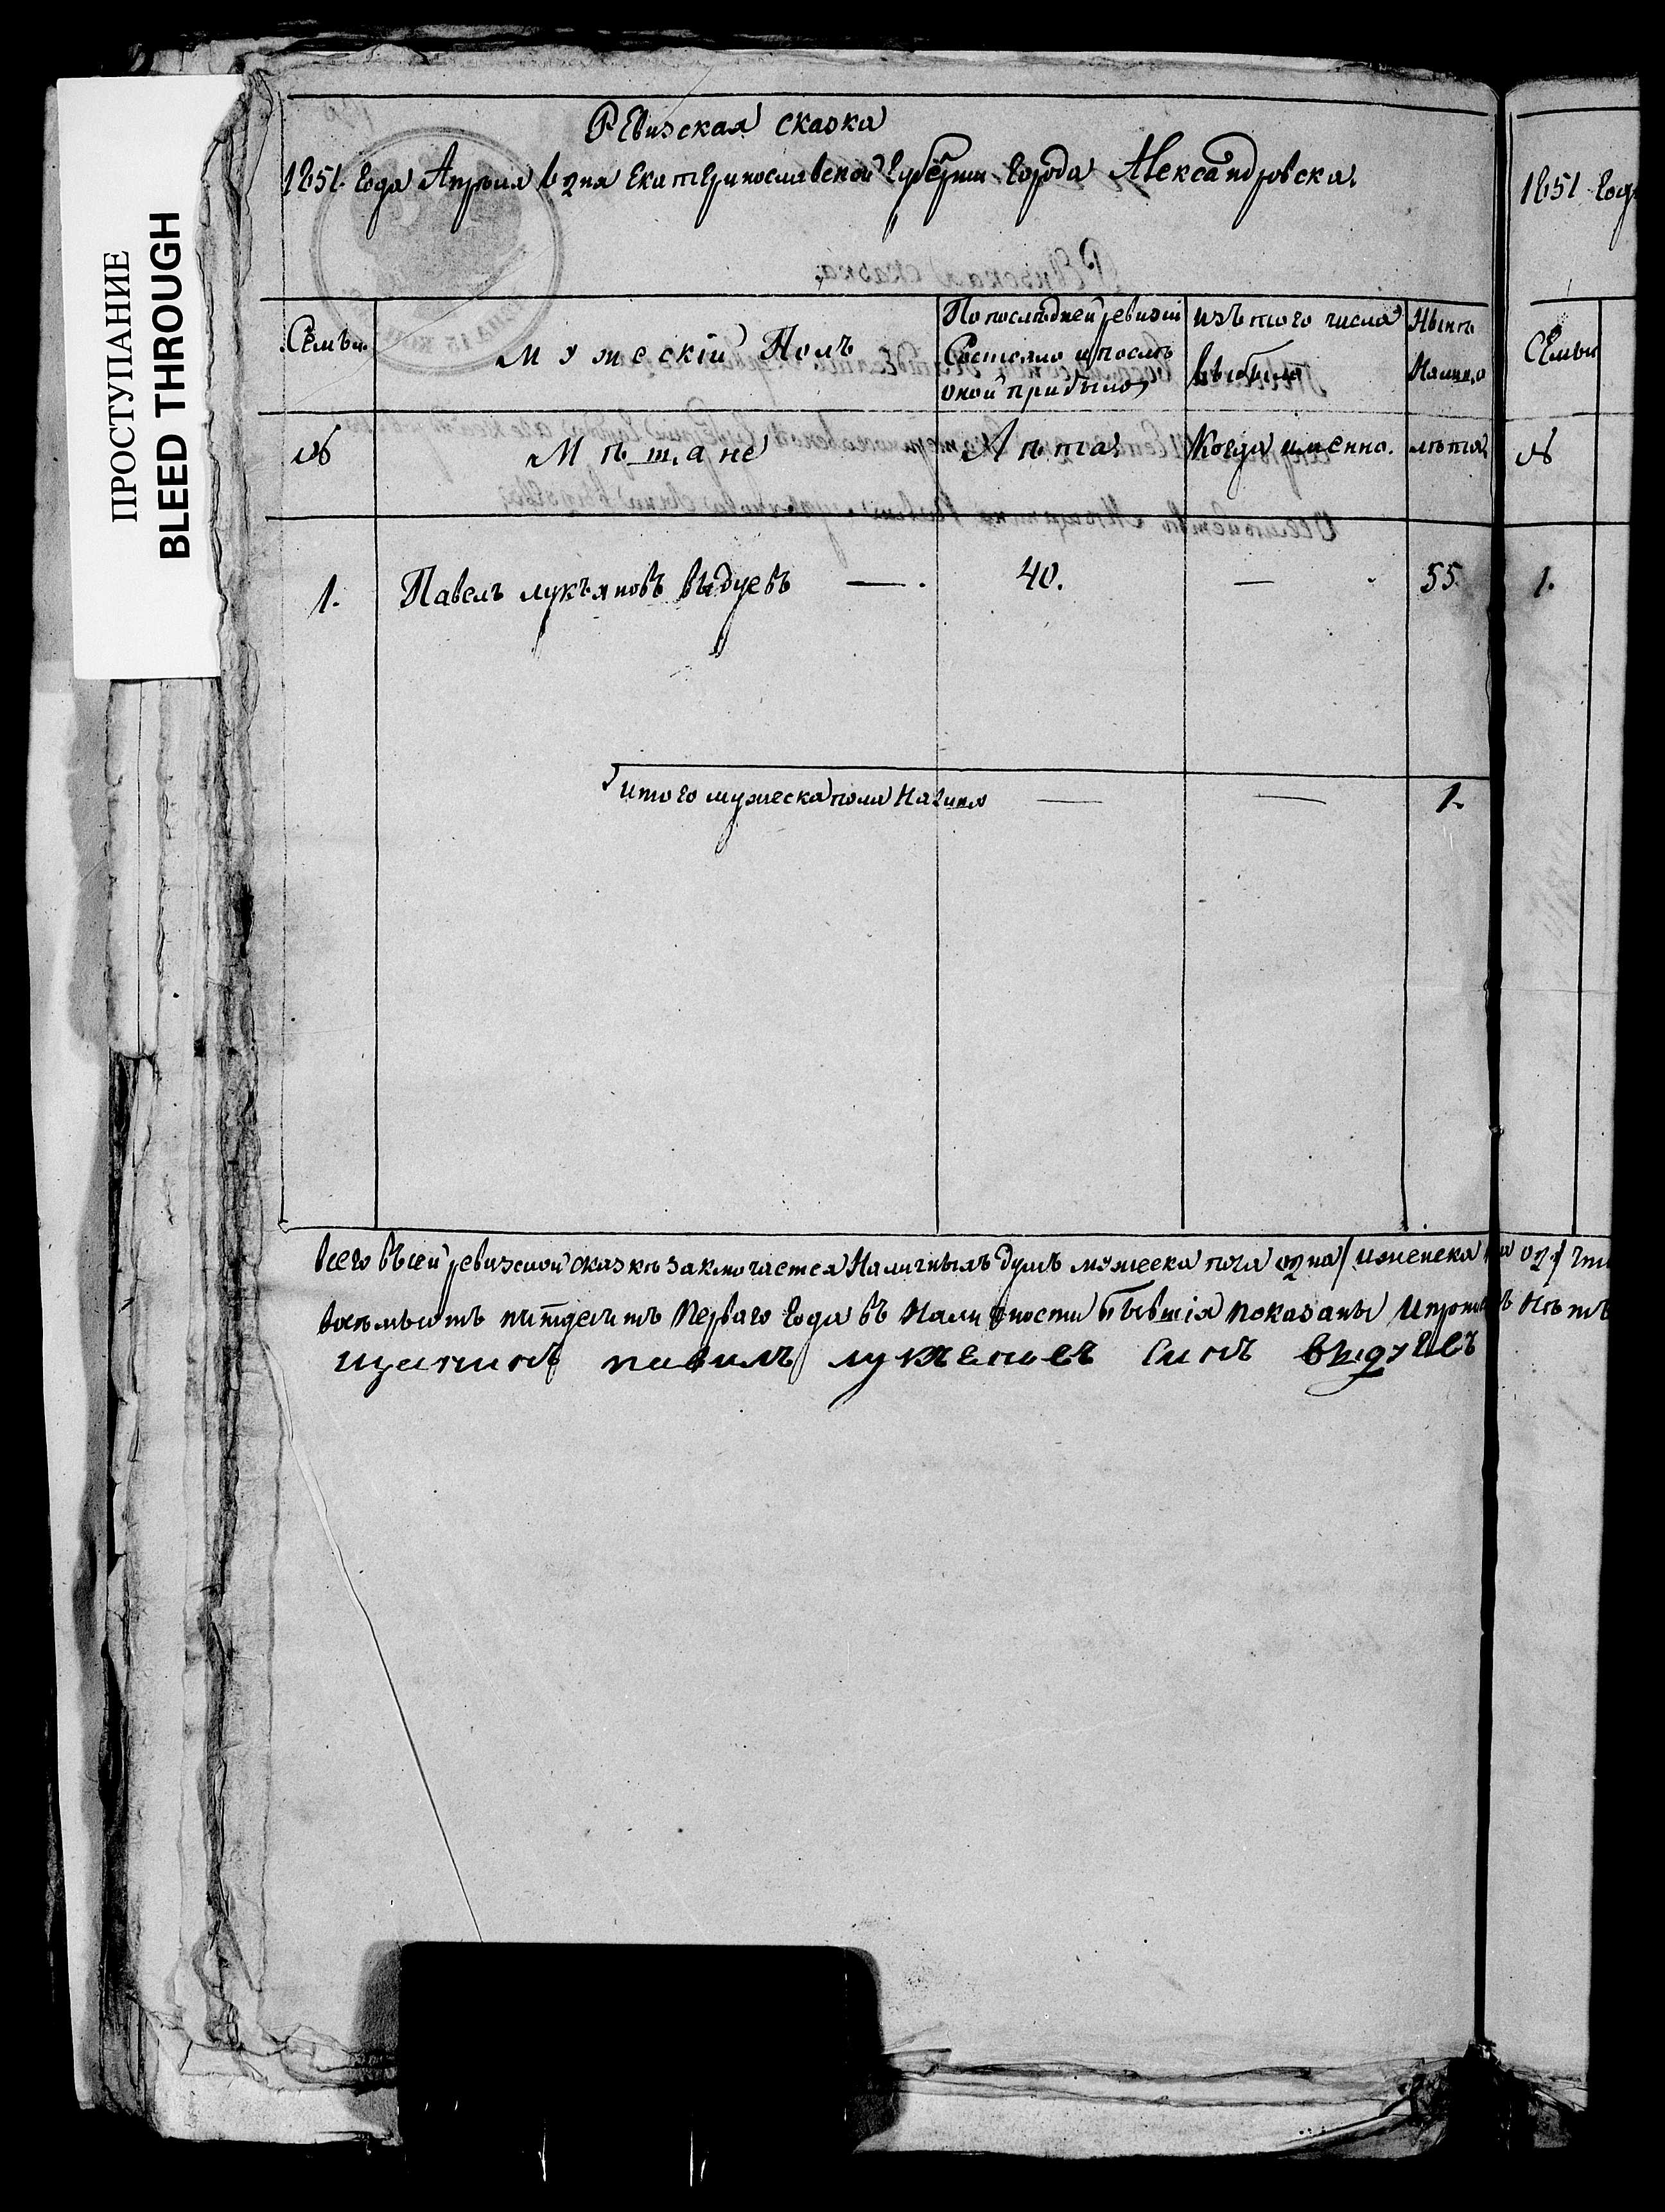 ПРОСТУПАНИЕ
BLEED THROUGH
Ревизская сказка
1851 года Апреля дня Екатеринославской Губернии города Александровска.
1851 года
Семьи
Мужескій Полъ
По последней ревизіи Состояло и после оной прибыло
изъ того числа выбыло
Ныне Налицо
Семьи
№
Мѣщане
Лѣта
Когда именно.
лѣта
№
1. Павелъ лукъяновъ выдуевъ — 40. — 55 1.
итого мужеска пола Налицо — — 1.
всего въ сей ревизской сказкѣ заключается Наличныхъ душъ мужеска пола одна / женска
восемьсотъ пятдесятъ Перваго года въ Наличности бывшія показаны И Нѣтъ
павилъ синъ